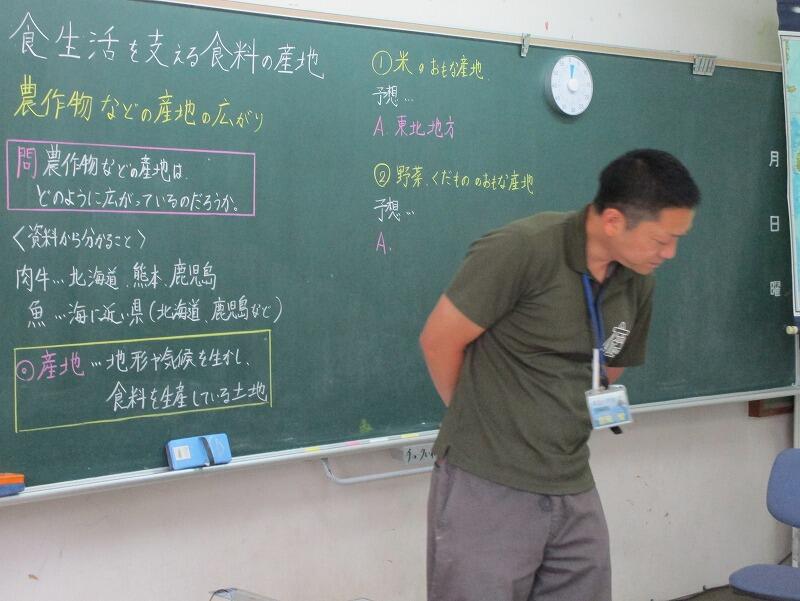 食生活を支える食料の産地
農作物などの産地の広がり
問 農作物などの産地は、
どのように広がっているのだろうか。
〈資料から分かること〉
肉牛…北海道、熊本、鹿児島
魚…海に近い県（北海道、鹿児島など）
◎産地…地形や気候を生かし、
食料を生産している土地
①米のおもな産地
予想…
A. 東北地方
②野菜、くだもののおもな産地
予想…
A.
月
日
曜